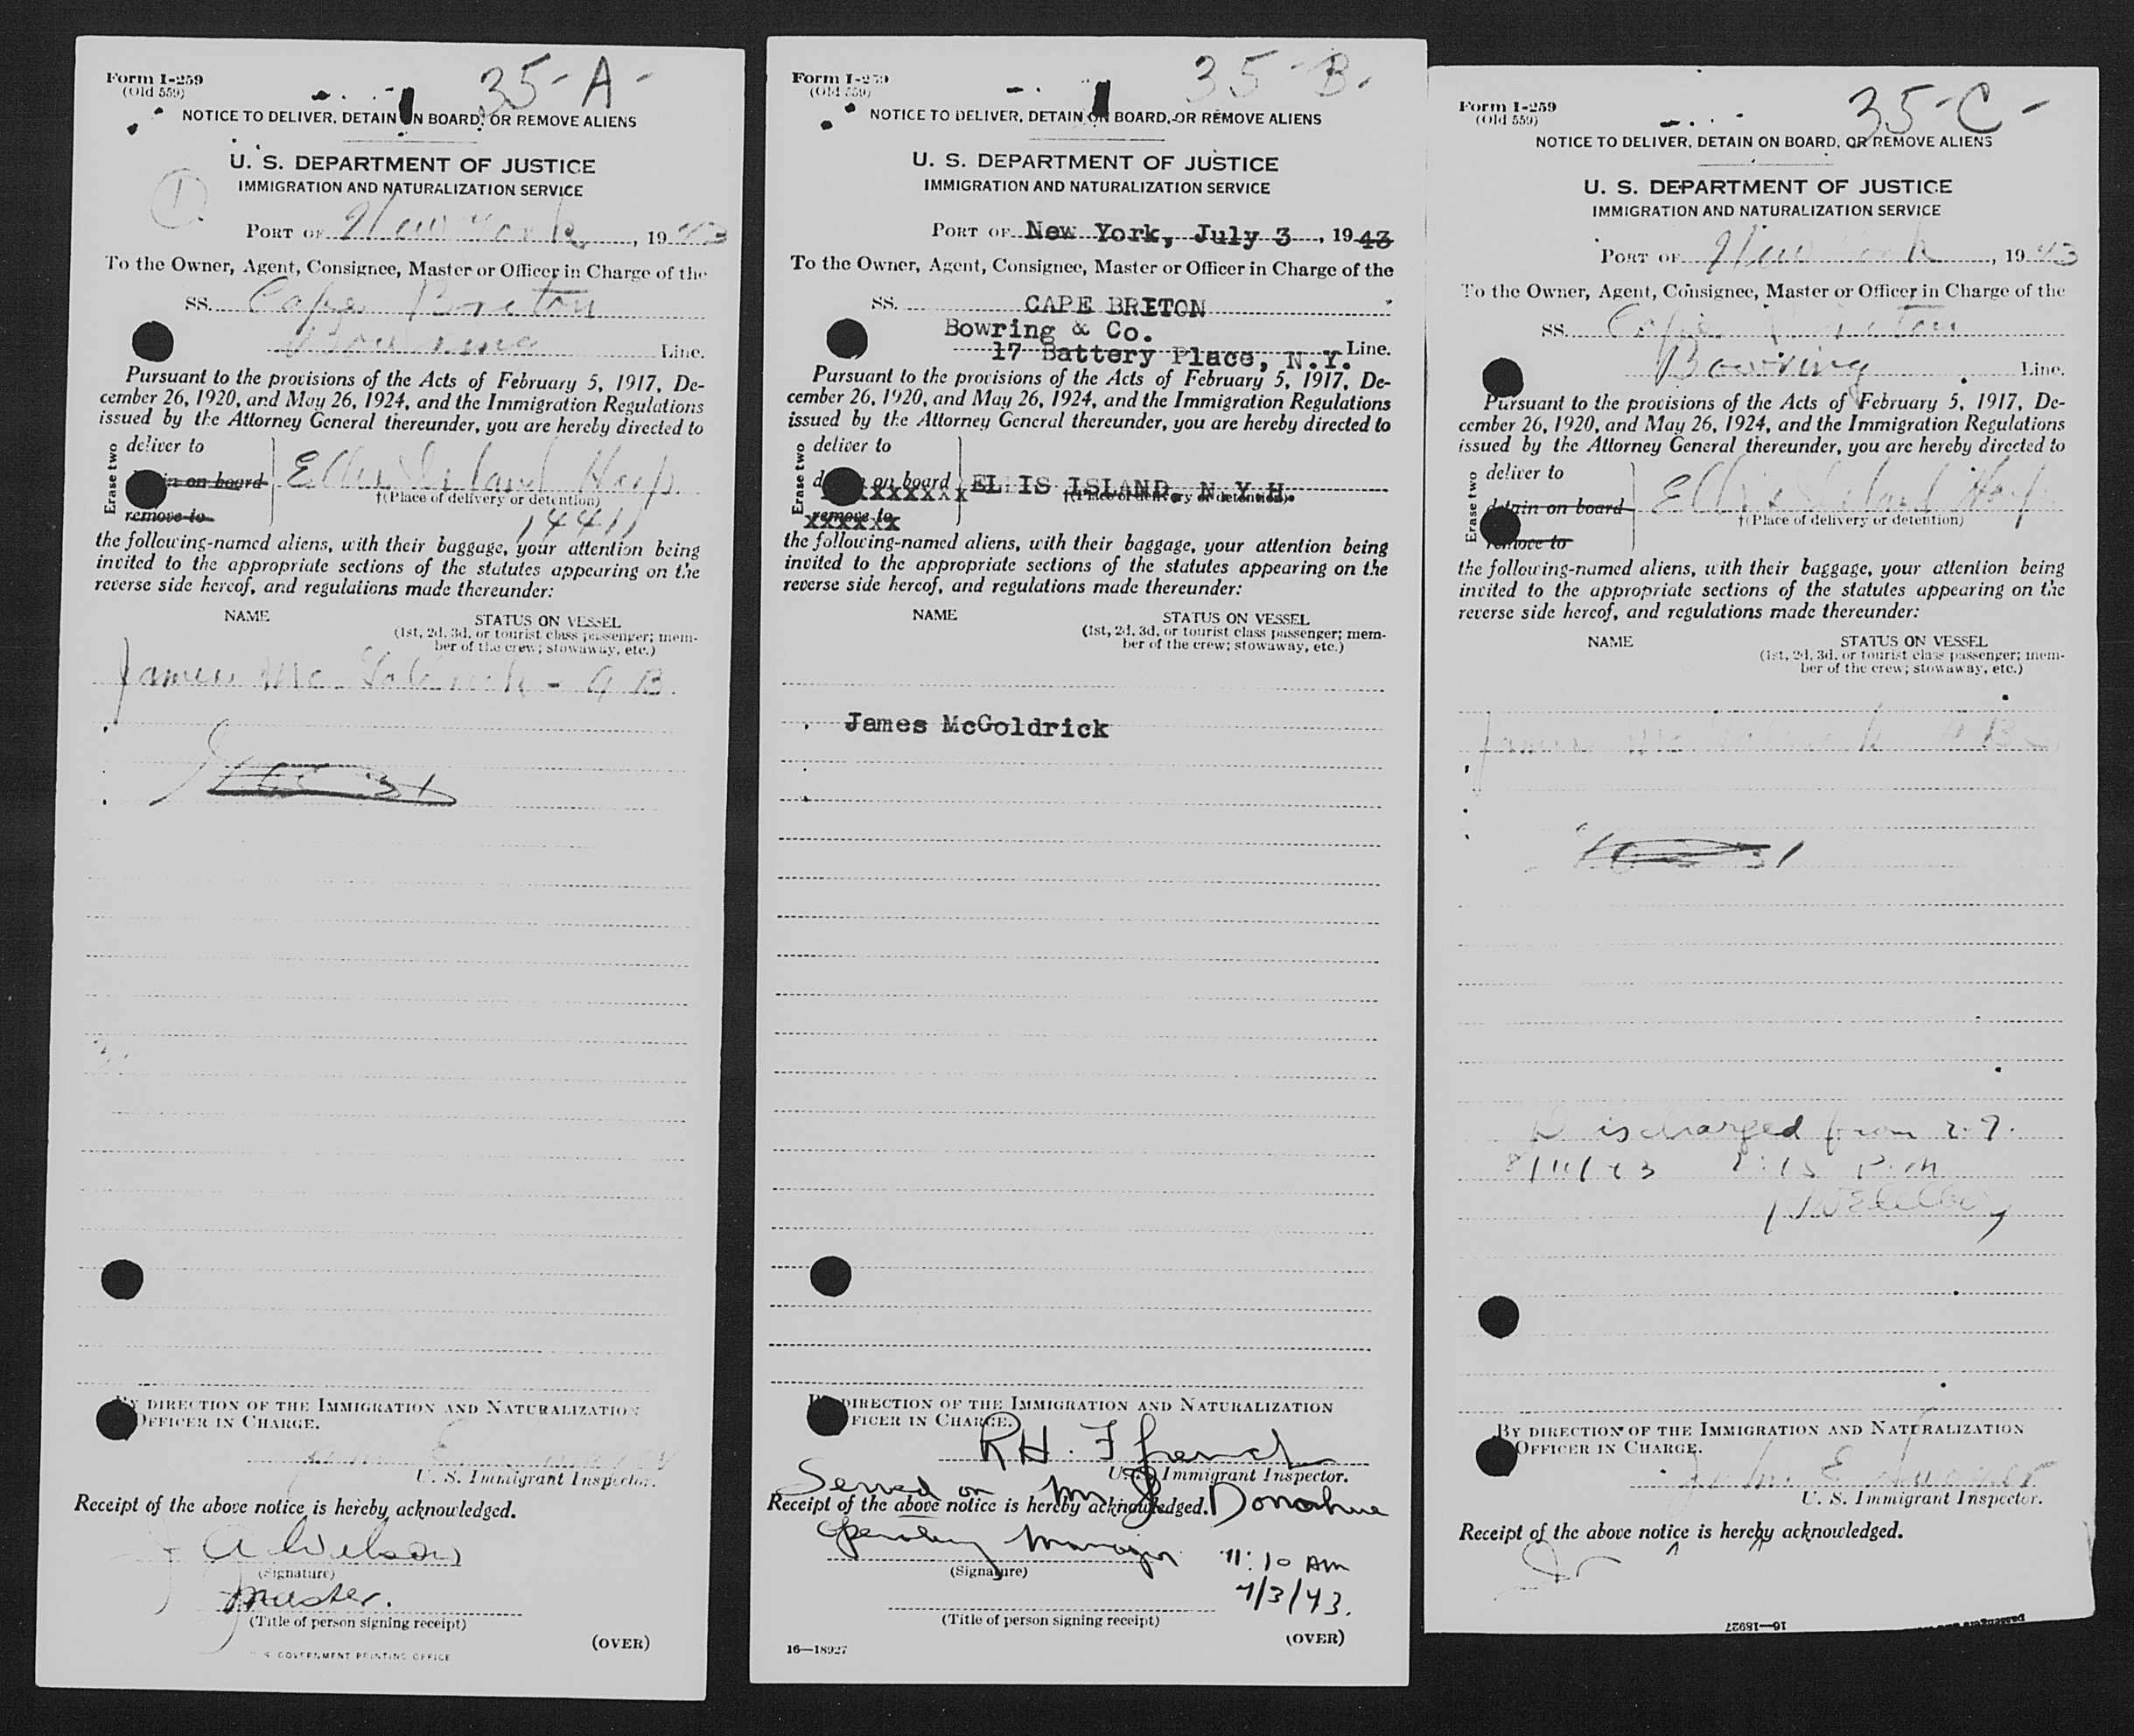 35-A-
Form I-259
(Old 559)
NOTICE TO DELIVER, DETAIN ON BOARD, OR REMOVE ALIENS
U. S. DEPARTMENT OF JUSTICE
IMMIGRATION AND NATURALIZATION SERVICE
1
PORT OF New York, 1943
To the Owner, Agent, Consignee, Master or Officer in Charge of the
SS. Cape Breton
Bowring Line.
Pursuant to the provisions of the Acts of February 5, 1917, De-
cember 26, 1920, and May 26, 1924, and the Immigration Regulations
issued by the Attorney General thereunder, you are hereby directed to
Erase two
deliver to
in on board
Ellis Island Hosp
†(Place of delivery or detention)
remove to
the following-named aliens, with their baggage, your attention being
invited to the appropriate sections of the statutes appearing on the
reverse side hereof, and regulations made thereunder:
NAME STATUS ON VESSEL
(1st, 2d, 3d, or tourist class passenger; mem-
ber of the crew; stowaway, etc.)
James McGoldrick - A B.
BY DIRECTION OF THE IMMIGRATION AND NATURALIZATION
OFFICER IN CHARGE.
U. S. Immigrant Inspector.
Receipt of the above notice is hereby acknowledged.
A Wilson
(Signature)
Master.
(Title of person signing receipt)
(OVER)
GOVERNMENT PRINTING OFFICE
35-B-
Form I-259
(Old 559)
NOTICE TO DELIVER, DETAIN ON BOARD, OR REMOVE ALIENS
U. S. DEPARTMENT OF JUSTICE
IMMIGRATION AND NATURALIZATION SERVICE
PORT OF New York, July 3, 1943
To the Owner, Agent, Consignee, Master or Officer in Charge of the
SS. CAPE BRETON
Bowring & Co.
17 Battery Place, N.Y. Line.
Pursuant to the provisions of the Acts of February 5, 1917, De-
cember 26, 1920, and May 26, 1924, and the Immigration Regulations
issued by the Attorney General thereunder, you are hereby directed to
Erase two
deliver to
on board
ELLIS ISLAND, N.Y.H.
†(Place of delivery or detention)
remove to
the following-named aliens, with their baggage, your attention being
invited to the appropriate sections of the statutes appearing on the
reverse side hereof, and regulations made thereunder:
NAME STATUS ON VESSEL
(1st, 2d, 3d, or tourist class passenger; mem-
ber of the crew; stowaway, etc.)
James McGoldrick
BY DIRECTION OF THE IMMIGRATION AND NATURALIZATION
OFFICER IN CHARGE.
RH. Ffrench
U. S. Immigrant Inspector.
Served on Mr J Donahue
Receipt of the above notice is hereby acknowledged.
Operating Manager 11:10 AM
(Signature)
7/3/43.
(Title of person signing receipt)
(OVER)
16—18927
35-C-
Form I-259
(Old 559)
NOTICE TO DELIVER, DETAIN ON BOARD, OR REMOVE ALIENS
U. S. DEPARTMENT OF JUSTICE
IMMIGRATION AND NATURALIZATION SERVICE
PORT OF New York, 1943
To the Owner, Agent, Consignee, Master or Officer in Charge of the
SS. Cape Breton
Bowring Line.
Pursuant to the provisions of the Acts of February 5, 1917, De-
cember 26, 1920, and May 26, 1924, and the Immigration Regulations
issued by the Attorney General thereunder, you are hereby directed to
Erase two
deliver to
detain on board
Ellis Island Hosp
†(Place of delivery or detention)
remove to
the following-named aliens, with their baggage, your attention being
invited to the appropriate sections of the statutes appearing on the
reverse side hereof, and regulations made thereunder:
NAME STATUS ON VESSEL
(1st, 2d, 3d, or tourist class passenger; mem-
ber of the crew; stowaway, etc.)
James McGoldrick A B
Discharged from
P.M.
BY DIRECTION OF THE IMMIGRATION AND NATURALIZATION
OFFICER IN CHARGE.
John E
U. S. Immigrant Inspector.
Receipt of the above notice is hereby acknowledged.
16—18927